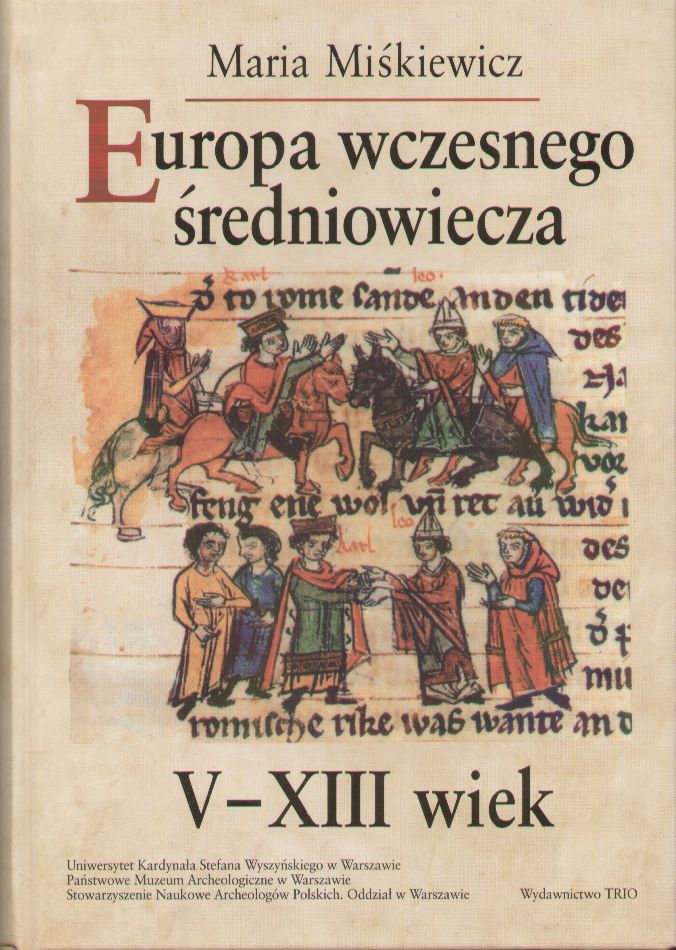 Maria Miśkiewicz
Europa wczesnego
średniowiecza
karl leo
to rome sande anden tide
des
feng ene wol vñ ret au wid
leo
karl
des
de
mu
romische rike was wante and
V–XIII wiek
Uniwersytet Kardynała Stefana Wyszyńskiego w Warszawie
Państwowe Muzeum Archeologiczne w Warszawie
Stowarzyszenie Naukowe Archeologów Polskich. Oddział w Warszawie
Wydawnictwo TRIO